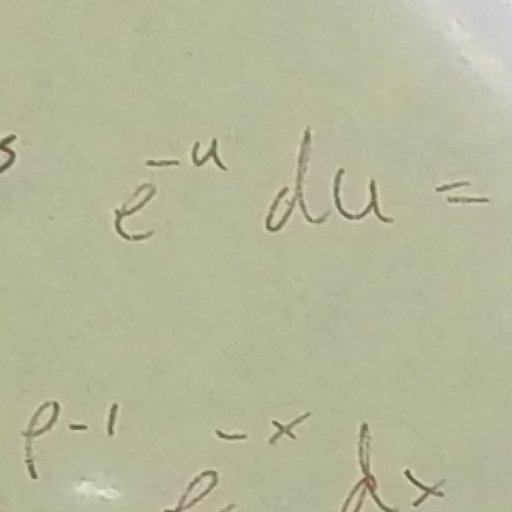 s e^{-u} du =
p-1 e^{-x} dx